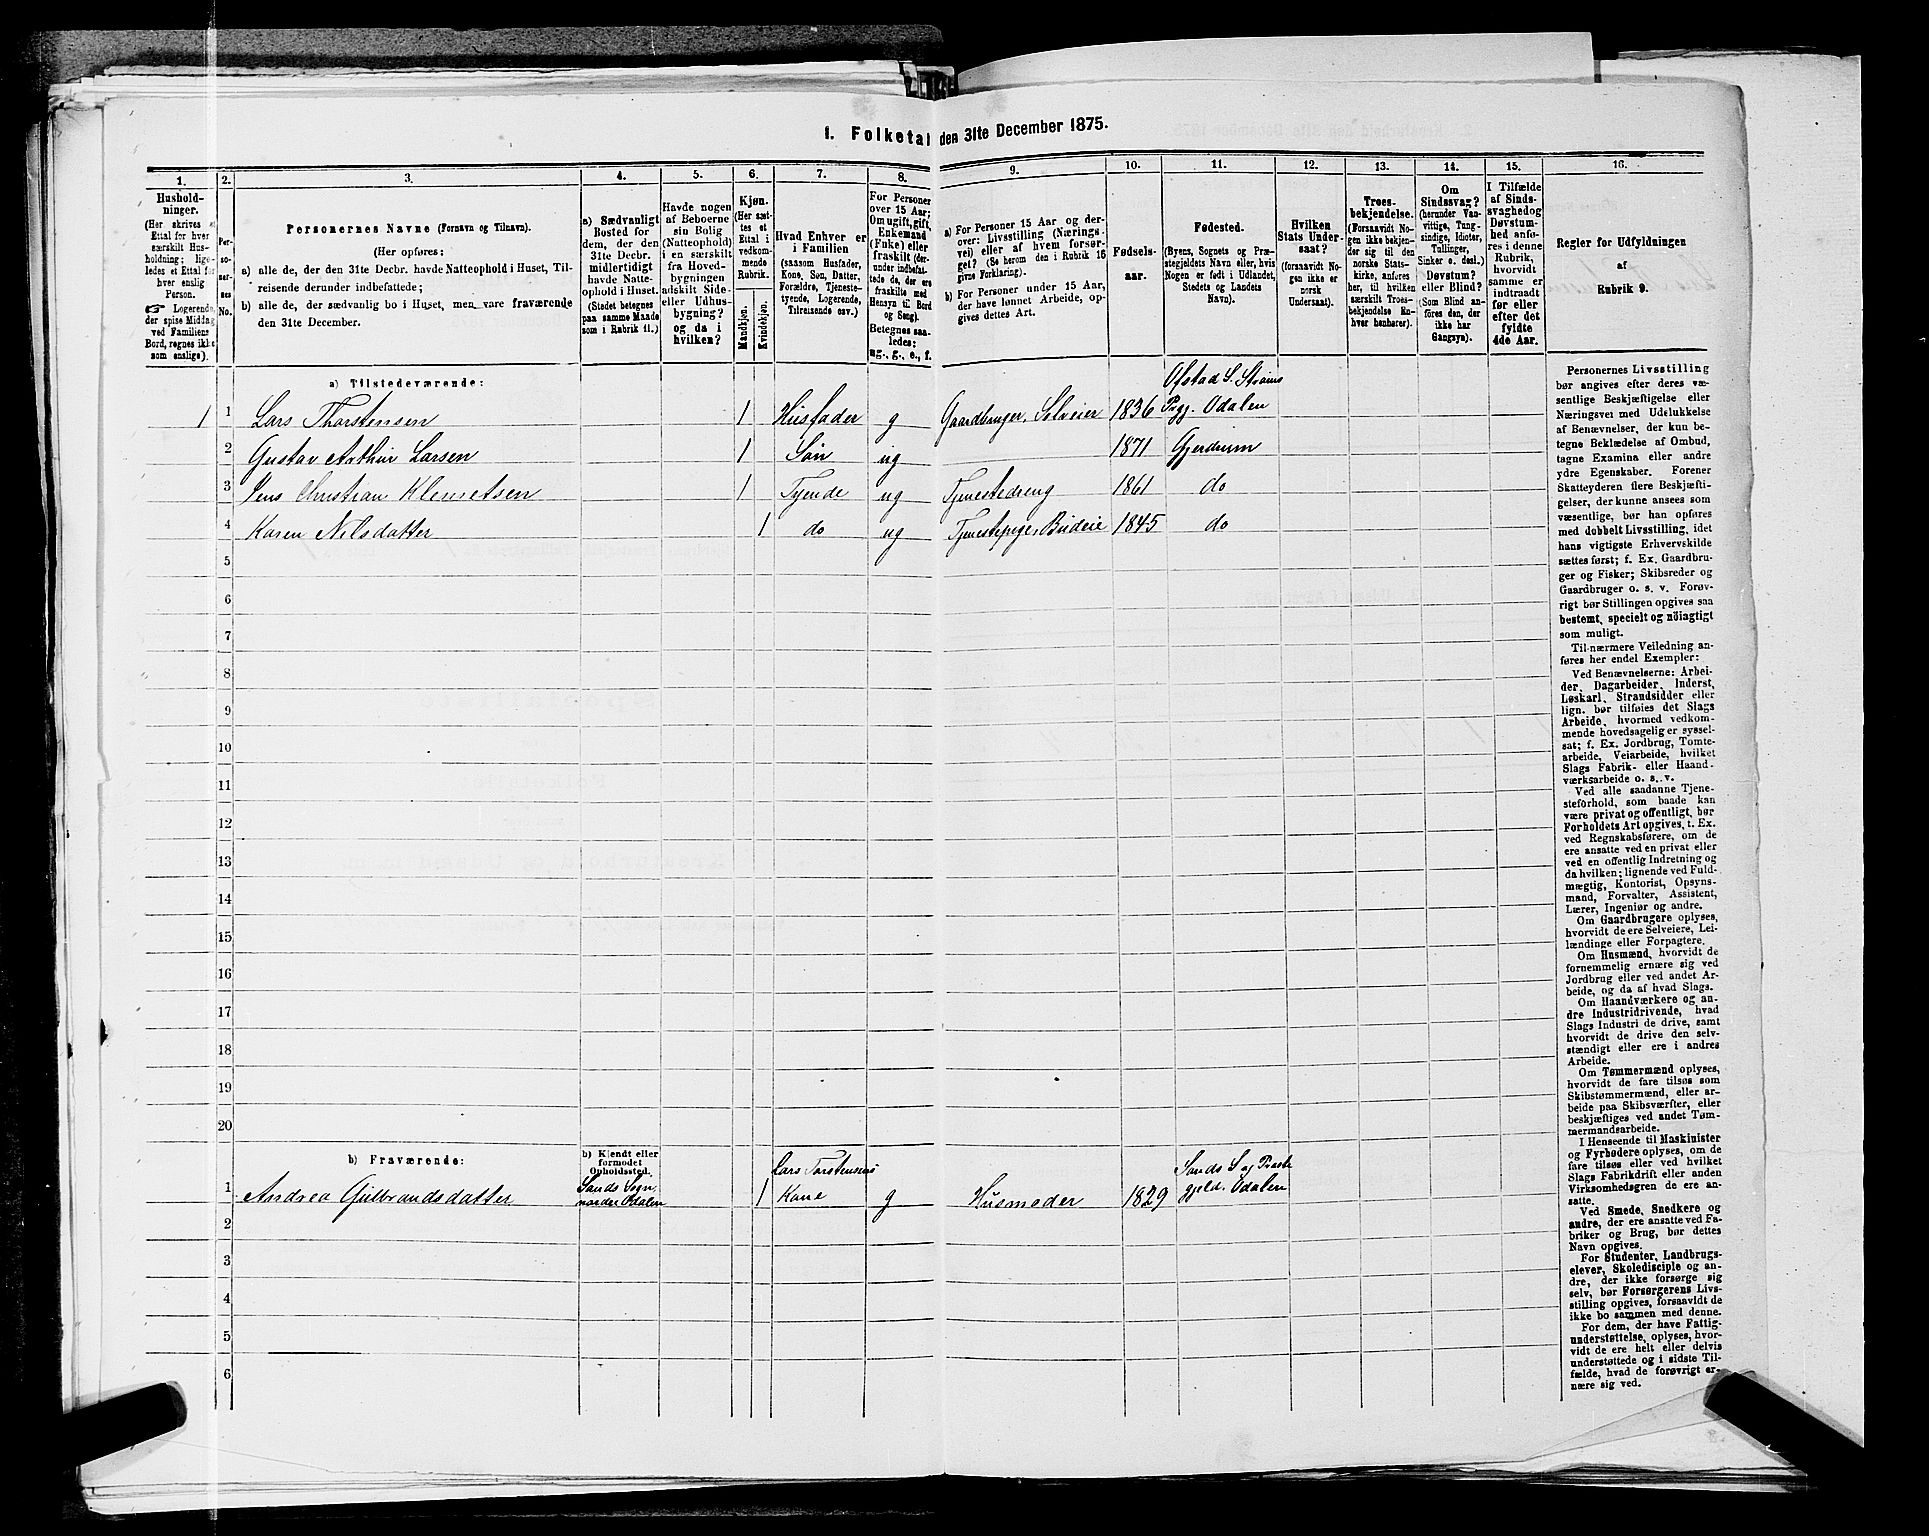 1. Folketal den 31te December 1875.
1.
Hushold-
ninger.
(Her skrives et
Ettal for hver
særskilt Hus-
holdning; lige-
ledes et Ettal for
hver enslig
Person.
☞ Logerende,
der spise Middag
ved Familiens
Bord, regnes ikke
som enslige).
2.
Per-
so-
ner-
nes
No.
3.
Personernes Navne (Fornavn og Tilnavn).
(Her opføres:
a) alle de, der den 31te Decbr. havde Natteophold i Huset, Til-
reisende derunder indbefattede;
b) alle de, der sædvanlig bo i Huset, men vare fraværende
den 31te December.
4.
a) Sædvanligt
Bosted for
dem, der den
31te Decbr.
midlertidigt
havde Natte-
ophold i Huset.
(Stedet betegnes
paa samme Maade
som i Rubrik 11.)
5.
Havde nogen
af Beboerne
sin Bolig
(Natteophold)
i en særskilt
fra Hoved-
bygningen
adskilt Side-
eller Udhus-
bygning?
og da i
hvilken?
6.
Kjøn.
(Her sæt-
tes et
Ettal i
vedkom-
mende
Rubrik.
Mandkjøn.
Kvindekjøn.
7.
Hvad Enhver er
i Familien
(saasom Husfader,
Kone, Søn, Datter,
Forældre, Tjeneste-
tyende, Logerende,
Tilreisende osv.)
8.
For Personer
over 15 Aar;
Om ugift, gift,
Enkemand
(Enke) eller
fraskilt (der-
under indbefat-
tede de, der ere
fraskilte med
Hensyn til Bord
og Seng).
Betegnes saa-
ledes:
ug., g., e., f.
9.
a) For Personer 15 Aar og der-
over: Livsstilling (Nærings-
vei) eller af hvem forsør-
get? (Se herom den i Rubrik 16
givne Forklaring).
b) For Personer under 15 Aar,
der have lønnet Arbeide, op-
gives dettes Art.
10.
Fødsels-
aar.
11.
Fødested.
(Byens, Sognets og Præ-
stegjeldets Navn eller, hvis
Nogen er født i Udlandet,
Stedets og Landets
Navn).
12.
Hvilken
Stats Under-
saat?
(forsaavidt No-
gen ikke er
norsk
Undersaat).
13.
Troes-
bekjendelse.
(Forsaavidt No-
gen ikke bekjen-
der sig til den
norske Stats-
kirke, anføres
her, til hvilken
særskilt Troes-
bekjendelse En-
hver henhører).
14.
Om
Sindssvag?
(herunder Van-
vittige, Tung-
sindige, Idioter,
Tullinger,
Sinker o. desl.)
Døvstum?
eller Blind?
(Som Blind an-
føres den, der
ikke har
Gangsyn).
15.
I Tilfælde
af Sinds-
svaghed og
Døvstum-
hed anfø-
res i denne
Rubrik,
hvorvidt
samme er
indtraadt
før eller
efter det
fyldte
4de Aar.
16.
Regler for Udfyldningen
af
Rubrik 9.
a) Tilstedeværende:
Ofstad S. Strøms
1 1 Lars Thorstensen 1 Husfader g Gaardbruger, Selveier 1836 Prgj. Odalen
2 Gustav Arthur Larsen 1 Søn ug 1871 Gjerdrum
3 Jens Christian Klemetsen 1 Tyende ug Tjenestedreng 1861 do
4 Karen Nilsdatter 1 do ug Tjenestepige, Budeie 1845 do
5
6
7
8
9
10
11
12
13
14
15
16
17
18
19
20
b) Fraværende:
b) Kjendt eller
formodet
Opholdssted.
Lars Torstensens
Sands S og Præste
1 Andrea Gulbrandsdatter Sands Sogn, nordre Odalen 1 Kone g Husmoder 1829 gjeld. Odalen
2
3
4
5
6
Personernes Livsstilling
bør angives efter deres væ-
sentlige Beskjæftigelse eller
Næringsvei med Udelukkelse
af Benævnelser, der kun be-
tegne Beklædelse af Ombud,
tagne Examina eller andre
ydre Egenskaber. Forener
Skatteyderen flere Beskjæfti-
gelser, der kunne ansees som
væsentlige, bør han opføres
med dobbelt Livsstilling, idet
hans vigtigste Erhvervskilde
sættes først; f. Ex. Gaardbru-
ger og Fisker; Skibsreder og
Gaardbruger o. s. v. Forøv-
rigt bør Stillingen opgives saa
bestemt, specielt og nöiagtigt
som muligt.
Til nærmere Veiledning an-
føres her endel Exempler:
Ved Benævnelserne: Arbei-
der, Dagarbeider, Inderst,
Løskarl, Strandsidder eller
lign. bør tilføies det Slags
Arbeide, hvormed vedkom-
mende hovedsagelig er syssel-
sat; f. Ex. Jordbrug, Tomte-
arbeide, Veiarbeide, hvilket
Slags Fabrik- eller Haand-
værksarbeide o. s. v.
Ved alle saadanne Tjene-
steforhold, som baade kan
være privat og offentligt, bør
Forholdets Art opgives, t. Ex.
ved Regnskabsførere, om de
ere ansatte ved en privat eller
ved en offentlig Indretning og
da hvilken; lignende ved Fuld-
mægtig, Kontorist, Opsyns-
mand, Forvalter, Assistent,
Lærer, Ingeniør og andre.
Om Gaardbrugere oplyses,
hvorvidt de ere Selveiere, Lei-
lændinge eller Forpagtere.
Om Husmænd, hvorvidt de
fornemmelig ernære sig ved
Jordbrug eller ved andet Ar-
beide, og da af hvad Slags.
Om Haandværkere og an-
dre Industridrivende, hvad
Slags Industri de drive, samt
hvorvidt de drive den selv-
stændigt eller ere i andres
Arbeide.
Om Tømmermænd oplyses,
hvorvidt de fare tilsøs som
Skibstømmermænd, eller ar-
beide paa Skibsværfter, eller
beskjæftiges ved andet Tøm-
mermandsarbeide.
I Henseende til Maskinister
og Fyrbødere oplyses, om de
fare tilsøs eller ved hvilket
Slags Fabrikdrift eller anden
Virksomhedsgren de ere an-
satte.
Ved Smede, Snedkere og
andre, der ere ansatte ved Fa-
briker og Brug, bør dettes
Navn opgives.
For Studenter, Landbrugs-
elever, Skoledisciple og an-
dre, der ikke forsørge sig
selv, bør Forsørgerens Livs-
stilling opgives, forsaavidt de
ikke bo sammen med denne.
For dem, der have Fattig-
understøttelse, oplyses, hvor-
vidt de ere helt eller delvis
understøttede og i sidste Til-
fælde, hvad de forøvrigt er-
nære sig ved.